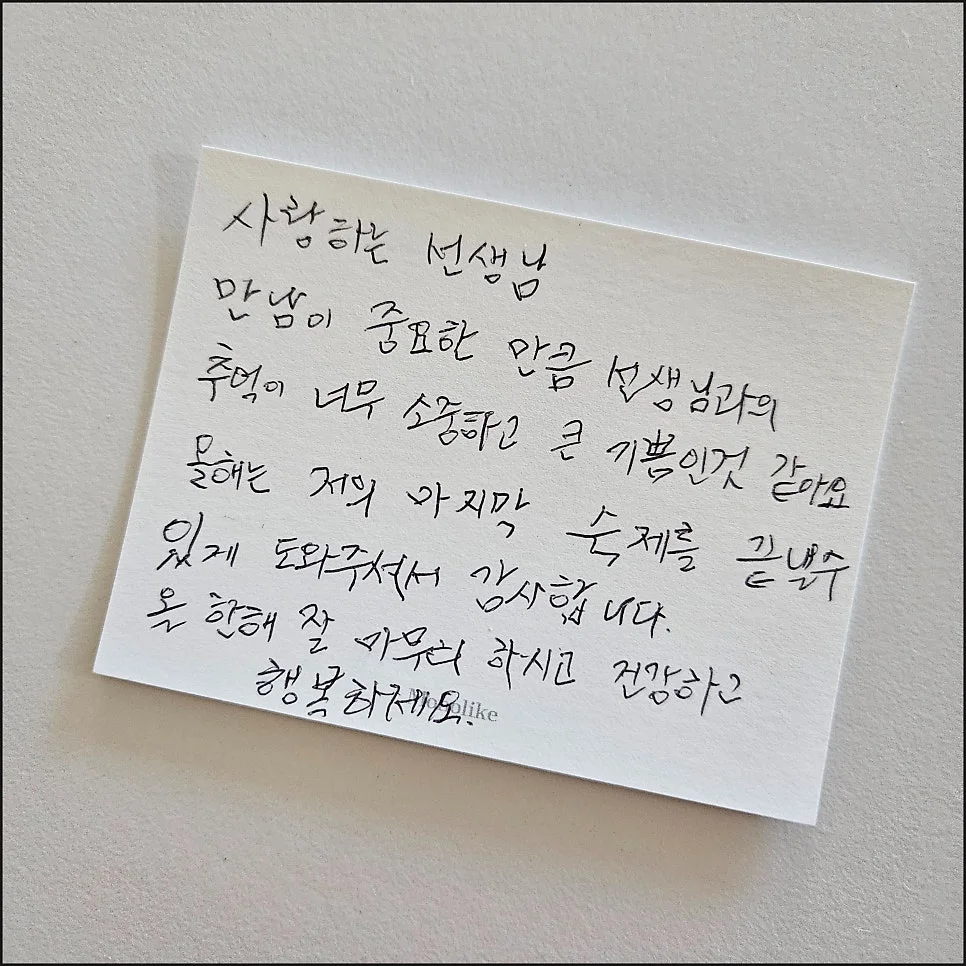 사랑하는 선생님
만남이 중요한 만큼 선생님과의
추억이 너무 소중하고 큰 기쁨인것 같아요
올해는 저의 마지막 숙제를 끝낼수
있게 도와주셔서 감사합니다.
올 한해 잘 마무리 하시고 건강하고
행복하세요.